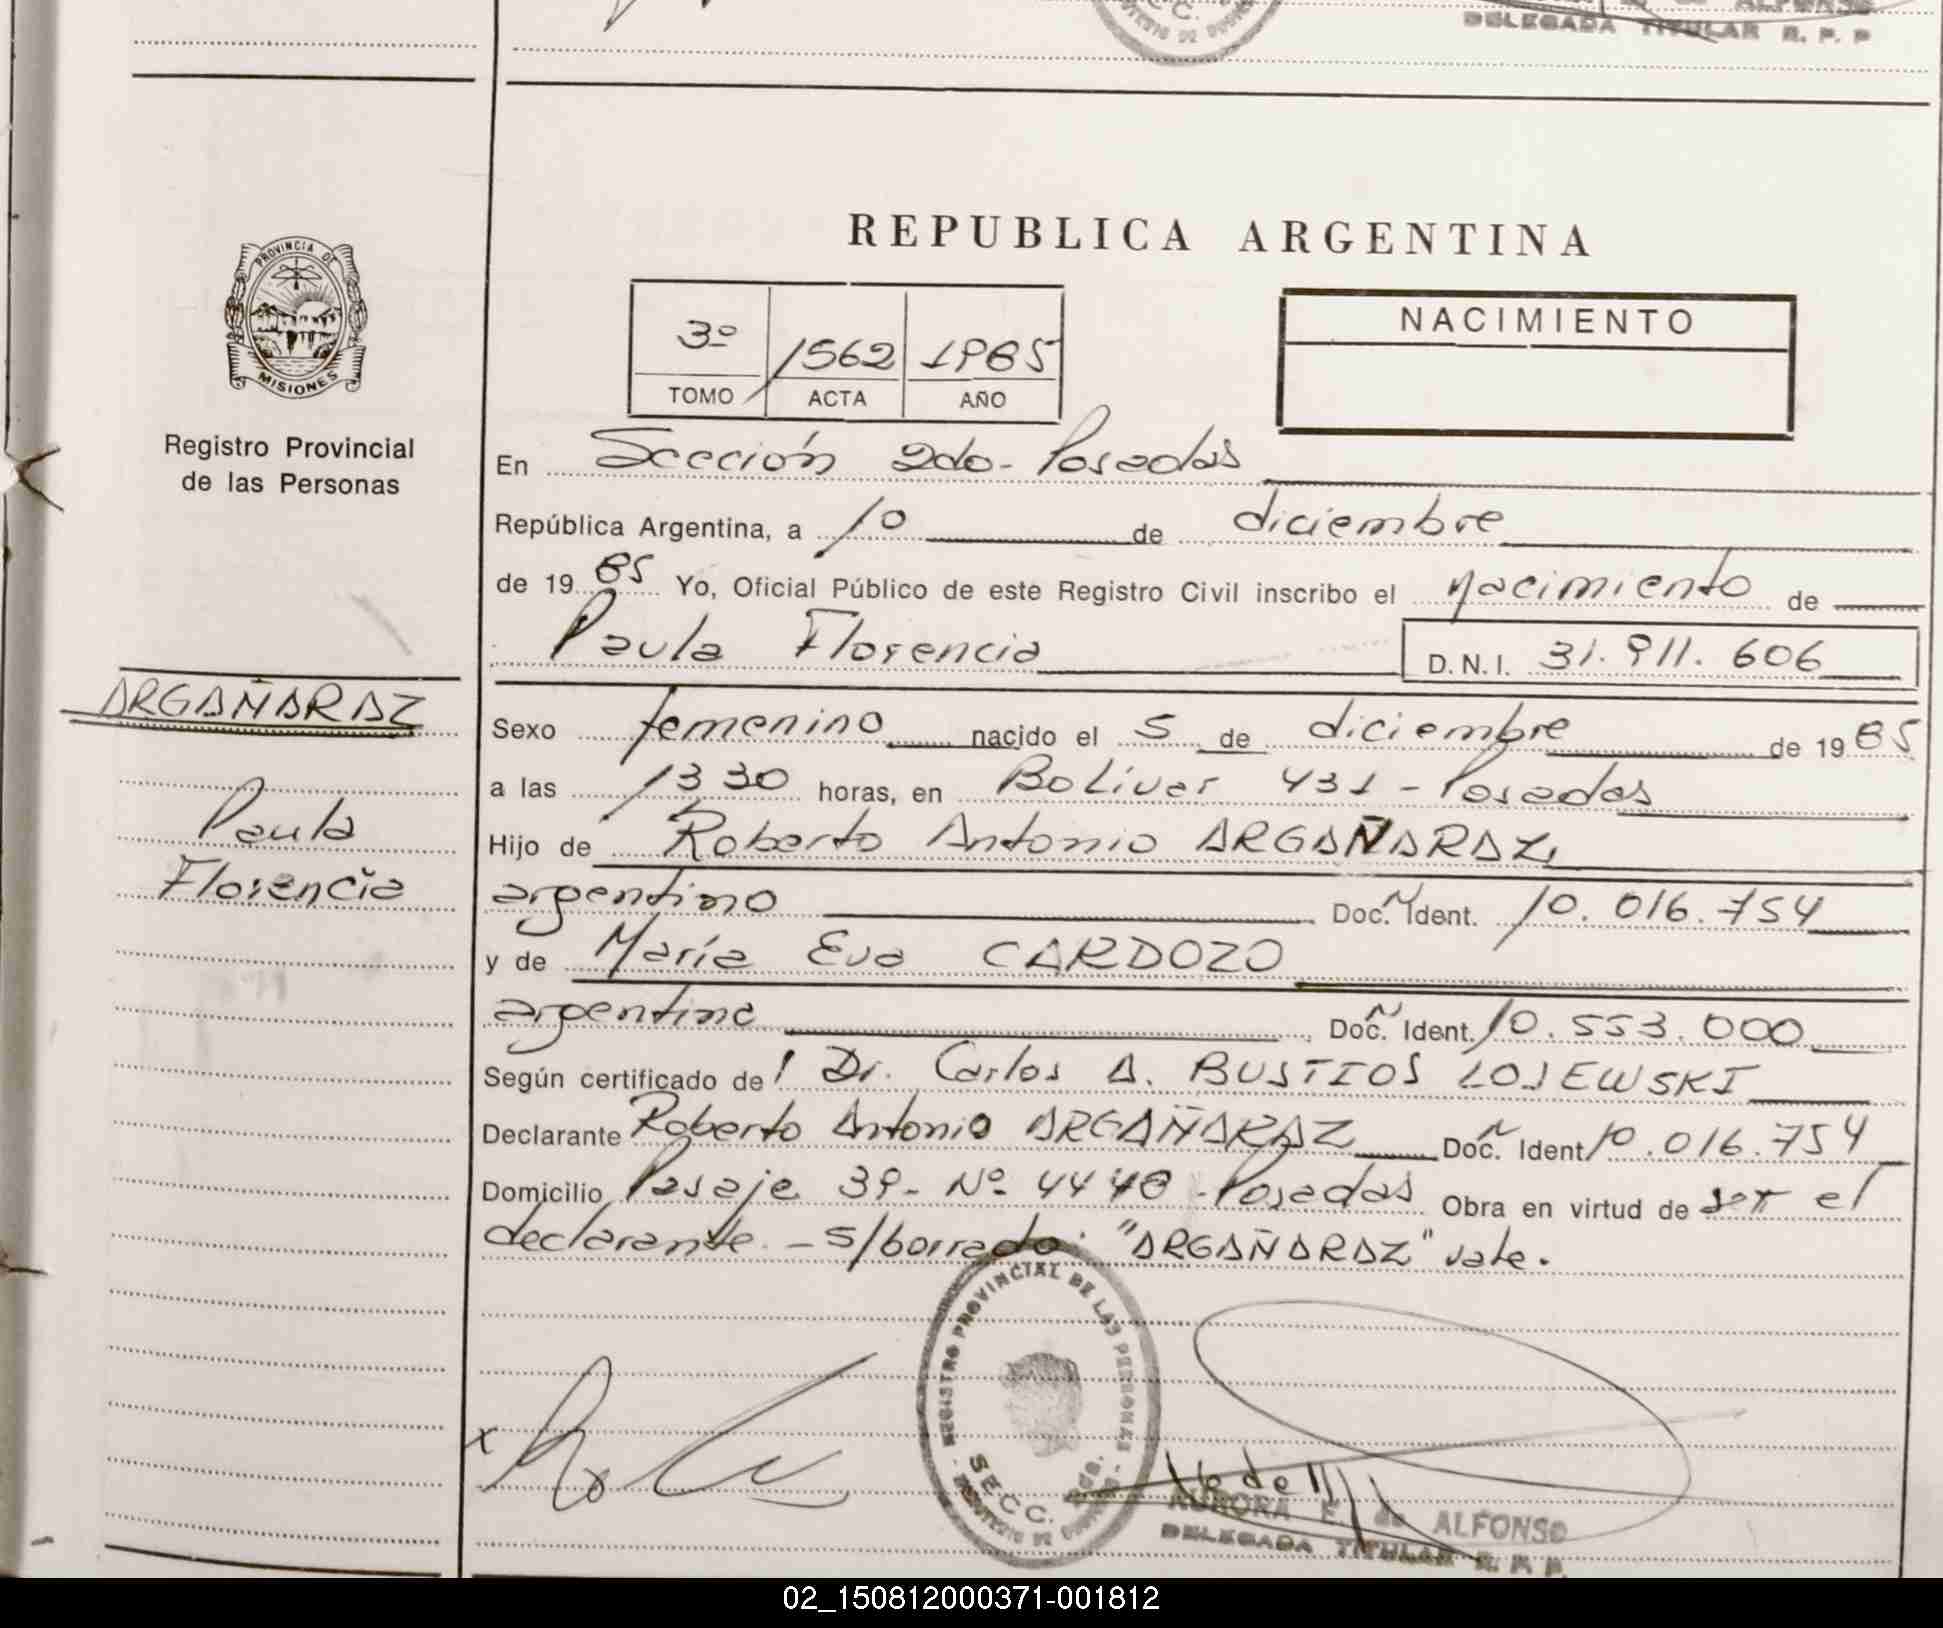 DELEGADA TITULAR R. P. P
REPUBLICA ARGENTINA
PROVINCIA DE
MISIONES
Registro Provincial
de las Personas
3º 1562 1985
TOMO ACTA AÑO
NACIMIENTO
En Sección 2da- Posadas
República Argentina, a 10 de diciembre
de 19 85 Yo, Oficial Público de este Registro Civil inscribo el nacimiento de
Paula Florencia D.N.I. 31.911.606
ARGAÑARAZ
Paula
Florencia
Sexo femenino nacido el 5 de diciembre de 19 85
a las 13 30 horas, en Bolívar 431 - Posadas
Hijo de Roberto Antonio ARGAÑARAZ,
argentino Doc. Ident. 10.016.754
y de María Eva CARDOZO
argentina Doc. Ident. 10.553.000
Según certificado de Dr. Carlos A. BUSTIOS LOJEWSKI
Declarante Roberto Antonio ARGAÑARAZ Doc. Ident 10.016.754
Domicilio Pasaje 39- Nº 4448 - Posadas Obra en virtud de ser el
declarante. - s/borrado: "ARGAÑARAZ" vale.
REGISTRO PROVINCIAL DE LAS PERSONAS
SECC.
AURORA E. de ALFONSO
DELEGADA TITULAR R. P. P.
02_150812000371-001812